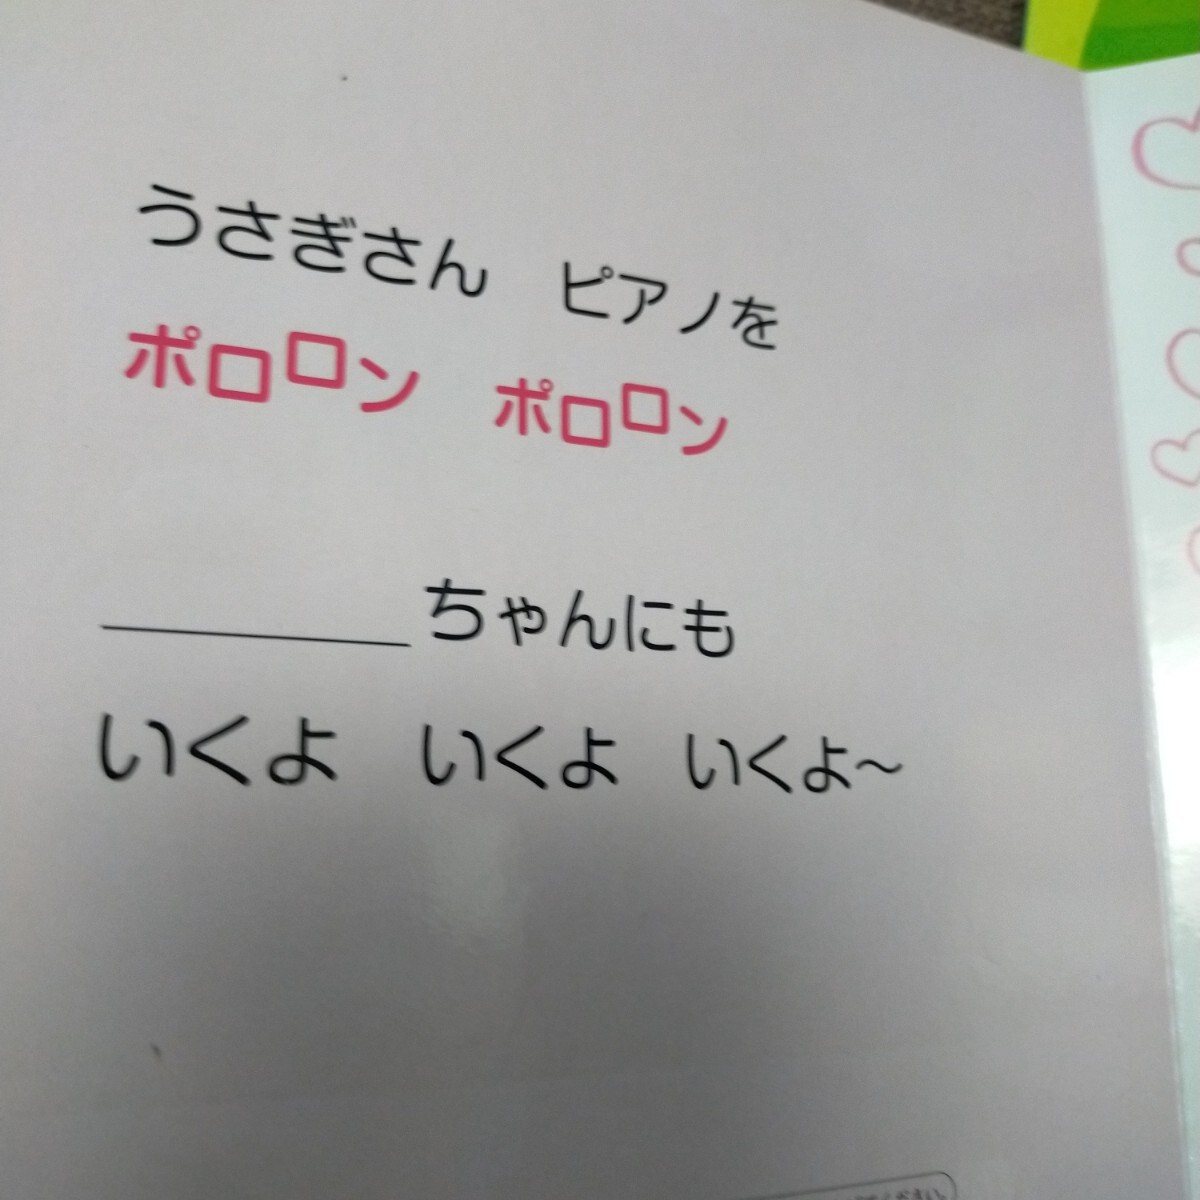 うさぎさん　ピアノを
ポロロン　ポロロン
＿＿＿＿ちゃんにも
いくよ　いくよ　いくよ～